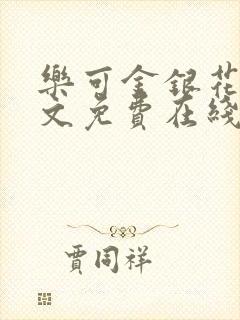 樂可金銀花
文免費在綫
賈同祥